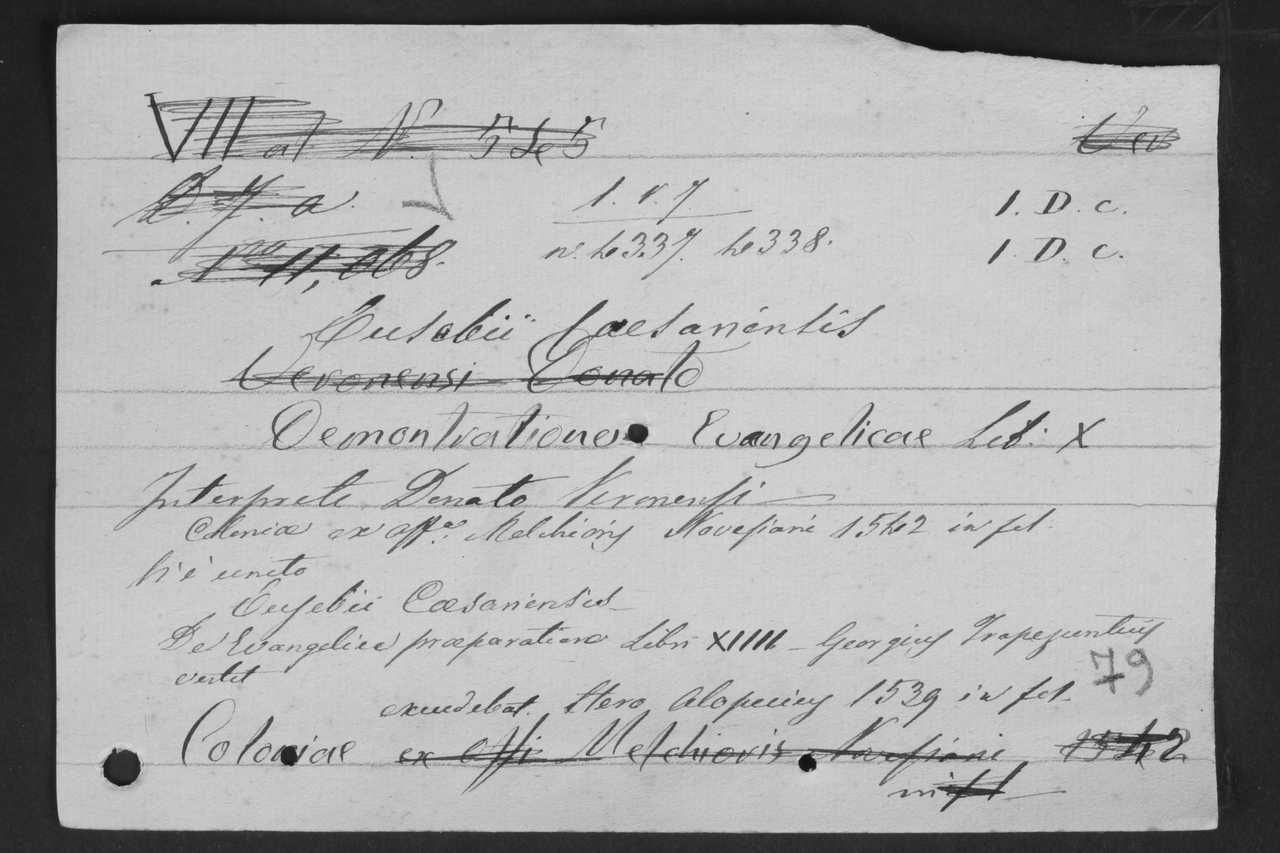 VII at N. 5 de 5
D. 7. a. 1. v. 7 1. D. c.
Nro 11,068. n. 4337. 4338. 1. D. c.
Eusebii Caesariensis
Veronensi Donato
Demontrationes Evangelicae Lib. X
Interprete Donato Veronensi
ex offa. Melchioris Novesiani 1542 in fol.
vi è unito
Eusebii Cæsariensis
De Evangelica præparatione Libri XIIII – Georgius Trapezuntius
vertit 79
excudebat. Hero Alopecius 1539 in fol.
Coloniae ex offi Melchioris 1542